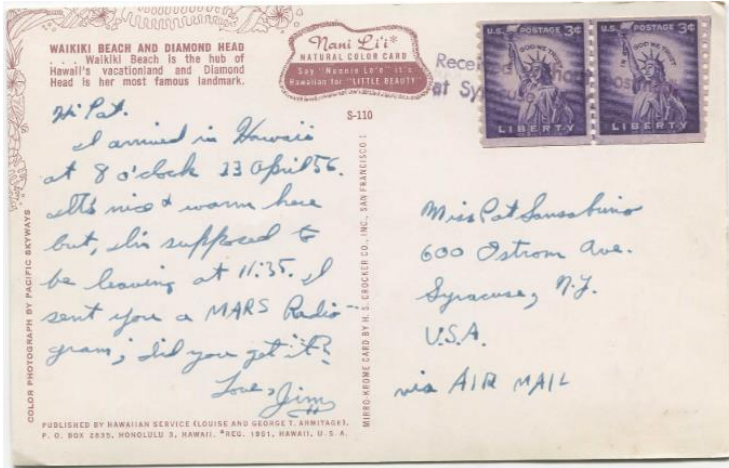 WAIKIKI BEACH AND DIAMOND HEAD
. . . Waikiki Beach is the hub of
Hawaii's vacationland and Diamond
Head is her most famous landmark.
Nani Li'i*
NATURAL COLOR CARD
Say "Nannie Lee" it's
Hawaiian for "LITTLE BEAUTY"
S-110
U.S. POSTAGE 3¢
IN GOD WE TRUST
LIBERTY
U.S. POSTAGE 3¢
IN GOD WE TRUST
LIBERTY
at Syracuse
Hi Pat.
I arrived in Hawaii
at 8 o'clock 23 April 56.
It's nice & warm here
but, I'm supposed to
be leaving at 11:35. I
sent you a MARS Radio-
gram; did you get it?
Love, Jim
Miss Pat
600 Ostrom Ave.
Syracuse, N.Y.
U.S.A.
via AIR MAIL
COLOR PHOTOGRAPH BY PACIFIC SKYWAYS
MIRRO-KROME CARD BY H. S. CROCKER CO., INC., SAN FRANCISCO 1
PUBLISHED BY HAWAIIAN SERVICE (LOUISE AND GEORGE T. ARMITAGE),
P. O. BOX 2835, HONOLULU 3, HAWAII. *REG. 1951, HAWAII, U. S. A.